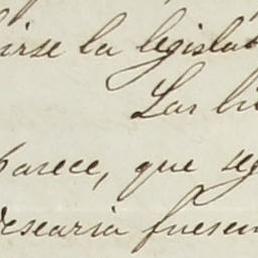 irse la legislat
Las
parece, que seg
desearia fuesen